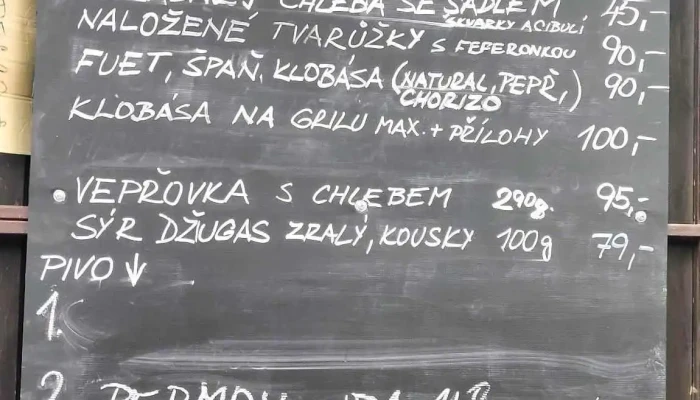 CHLEBA SE SÁDLEM 45,-
ŠKVARKY A CIBULÍ
NALOŽENÉ TVARŮŽKY S FEFERONKOU 90,-
FUET, ŠPAŇ. KLOBÁSA (NATURAL, PEPŘ, 90,-
CHORIZO)
KLOBÁSA NA GRILU MAX. + PŘÍLOHY 100,-
VEPŘOVKA S CHLEBEM 290g. 95,-
SÝR DŽUGAS ZRALÝ, KOUSKY 100g 79,-
PIVO ↓
1.
2.